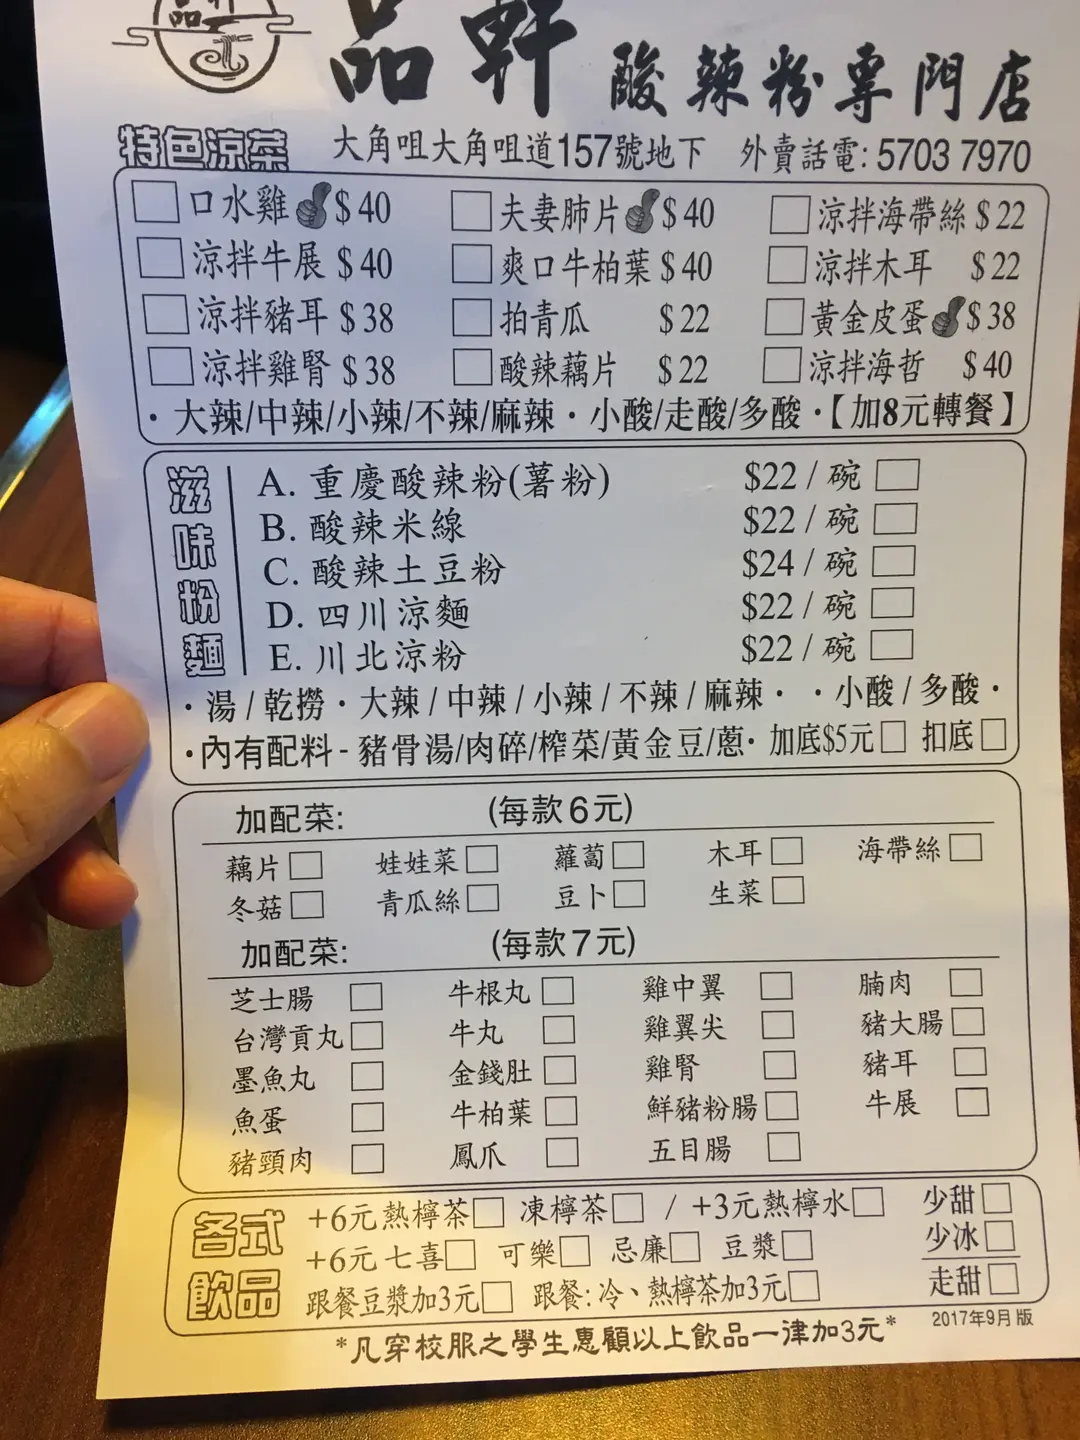 品軒 酸辣粉專門店
特色涼菜 大角咀大角咀道157號地下 外賣話電: 5703 7970
口水雞 $40 夫妻肺片 $40 涼拌海帶絲 $22
涼拌牛展 $40 爽口牛柏葉 $40 涼拌木耳 $22
涼拌豬耳 $38 拍青瓜 $22 黃金皮蛋 $38
涼拌雞腎 $38 酸辣藕片 $22 涼拌海哲 $40
· 大辣/中辣/小辣/不辣/麻辣 · 小酸/走酸/多酸 ·【加8元轉餐】
滋味粉麵
A. 重慶酸辣粉(薯粉) $22 / 碗
B. 酸辣米線 $22 / 碗
C. 酸辣土豆粉 $24 / 碗
D. 四川涼麵 $22 / 碗
E. 川北涼粉 $22 / 碗
· 湯 / 乾撈 · 大辣 / 中辣 / 小辣 / 不辣 / 麻辣 · · 小酸 / 多酸 ·
· 內有配料 - 豬骨湯/肉碎/榨菜/黃金豆/蔥· 加底$5元 扣底
加配菜: (每款6元)
藕片 娃娃菜 蘿蔔 木耳 海帶絲
冬菇 青瓜絲 豆卜 生菜
加配菜: (每款7元)
芝士腸 牛根丸 雞中翼 腩肉
台灣貢丸 牛丸 雞翼尖 豬大腸
墨魚丸 金錢肚 雞腎 豬耳
魚蛋 牛柏葉 鮮豬粉腸 牛展
豬頸肉 鳳爪 五目腸
各式飲品
+6元熱檸茶 凍檸茶 / +3元熱檸水 少甜
+6元 七喜 可樂 忌廉 豆漿 少冰
跟餐豆漿加3元 跟餐: 冷、熱檸茶加3元 走甜
*凡穿校服之學生惠顧以上飲品一律加3元* 2017年9月 版